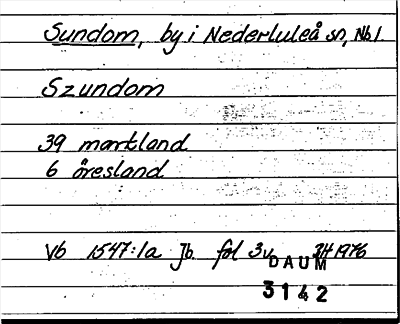 Sundom, by i Nederluleå sn, Nb l.
Szundom
39 markland
6 öresland
Vb 1547:1a Jb. fol 3v JH 1976
DAUM
3142